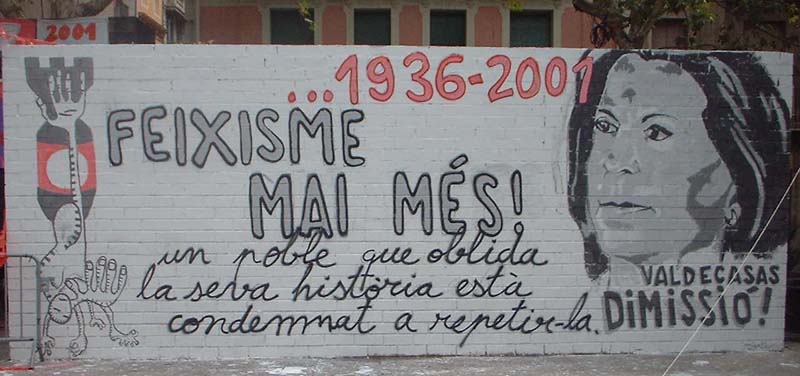 2001
...1936-2001
FEIXISME
MAI MÉS!
un poble que oblida
la seva història està
condemnat a repetir-la.
VALDECASAS
DiMISSIÓ!